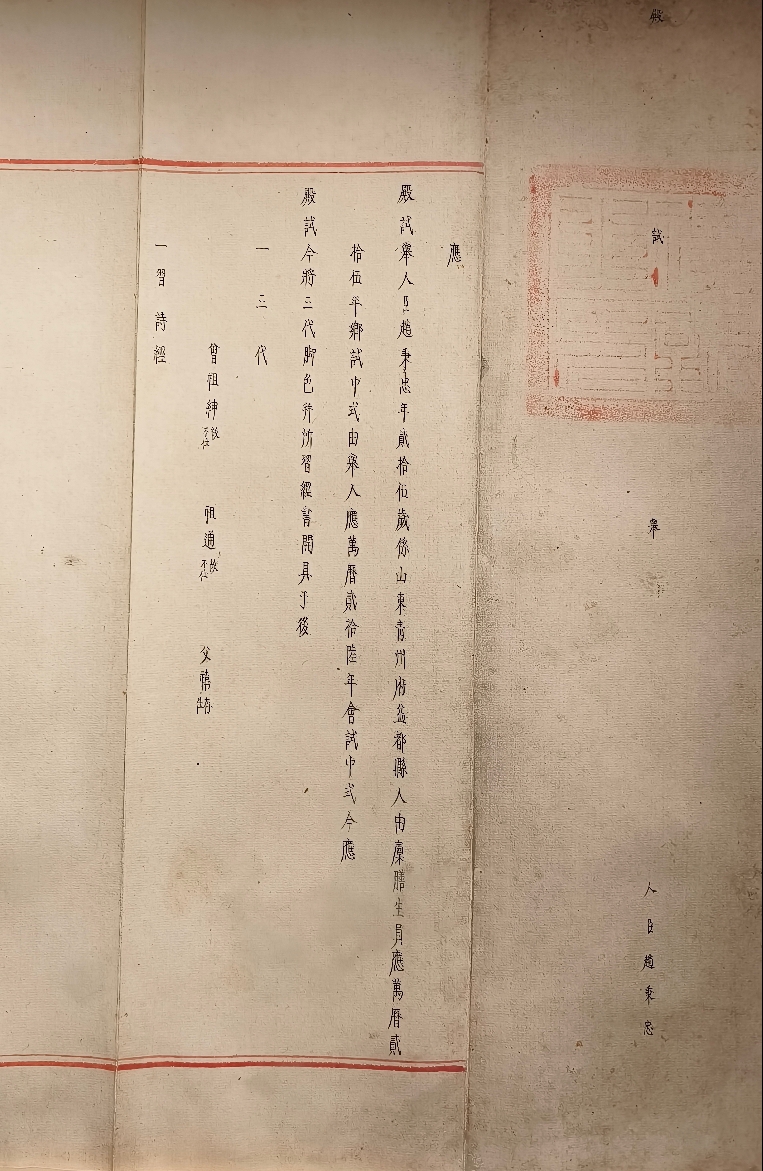 殿試舉人臣趙秉忠
應
殿試舉人臣趙秉忠年貳拾伍歲係山東青州府益都縣人由廩膳生員應萬曆貳
拾伍年鄉試中式由舉人應萬曆貳拾陸年會試中式今應
殿試今將三代脚色并所習經書開具于後
一三代
曾祖紳故不仕 祖通故不仕 父禧
一習詩經